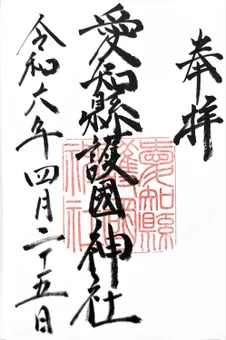 奉拝
愛知縣護國神社
愛知縣護國神社
令和六年四月二十五日